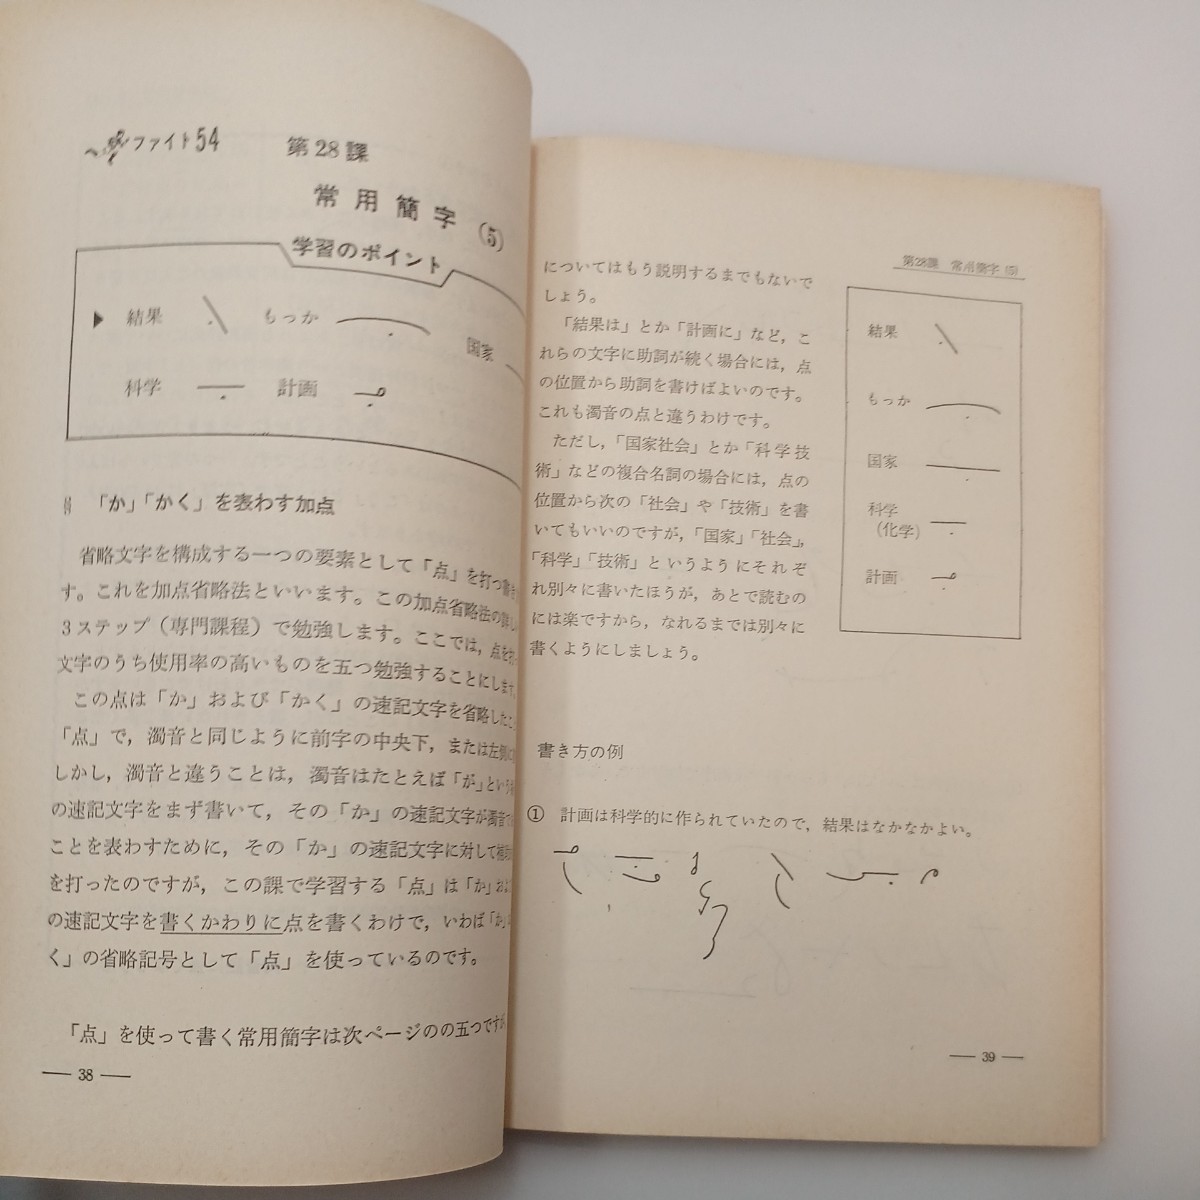 ファイト54
第28課
常用簡字(5)
学習のポイント
結果 もっか 国家
科学 計画
「か」「かく」を表わす加点
省略文字を構成する一つの要素として「点」を打つ
す。これを加点省略法といいます。この加点省略法の
3ステップ(専門課程)で勉強します。ここでは,点を
文字のうち使用率の高いものを五つ勉強することにします
この点は「か」および「かく」の速記文字を省略した
「点」で,濁音と同じように前字の中央下,または左側
しかし,濁音と違うことは,濁音はたとえば「が」という
の速記文字をまず書いて,その「か」の速記文字が濁音
ことを表わすために,その「か」の速記文字に対して
を打ったのですが,この課で学習する「点」は「か」
の速記文字を書くかわりに点を書くわけで,いわば「か」
く」の省略記号として「点」を使っているのです。
「点」を使って書く常用簡字は次ページのの五つですが
— 38 —
第28課 常用簡字(5)
についてはもう説明するまでもないで
しょう。
「結果は」とか「計画に」など,こ
れらの文字に助詞が続く場合には,点
の位置から助詞を書けばよいのです。
これも濁音の点と違うわけです。
ただし,「国家社会」とか「科学技
術」などの複合名詞の場合には,点の
位置から次の「社会」や「技術」を書
いてもいいのですが,「国家」「社会」,
「科学」「技術」というようにそれぞ
れ別々に書いたほうが,あとで読むの
には楽ですから,なれるまでは別々に
書くようにしましょう。
結果
もっか
国家
科学
(化学)
計画
書き方の例
① 計画は科学的に作られていたので,結果はなかなかよい。
— 39 —